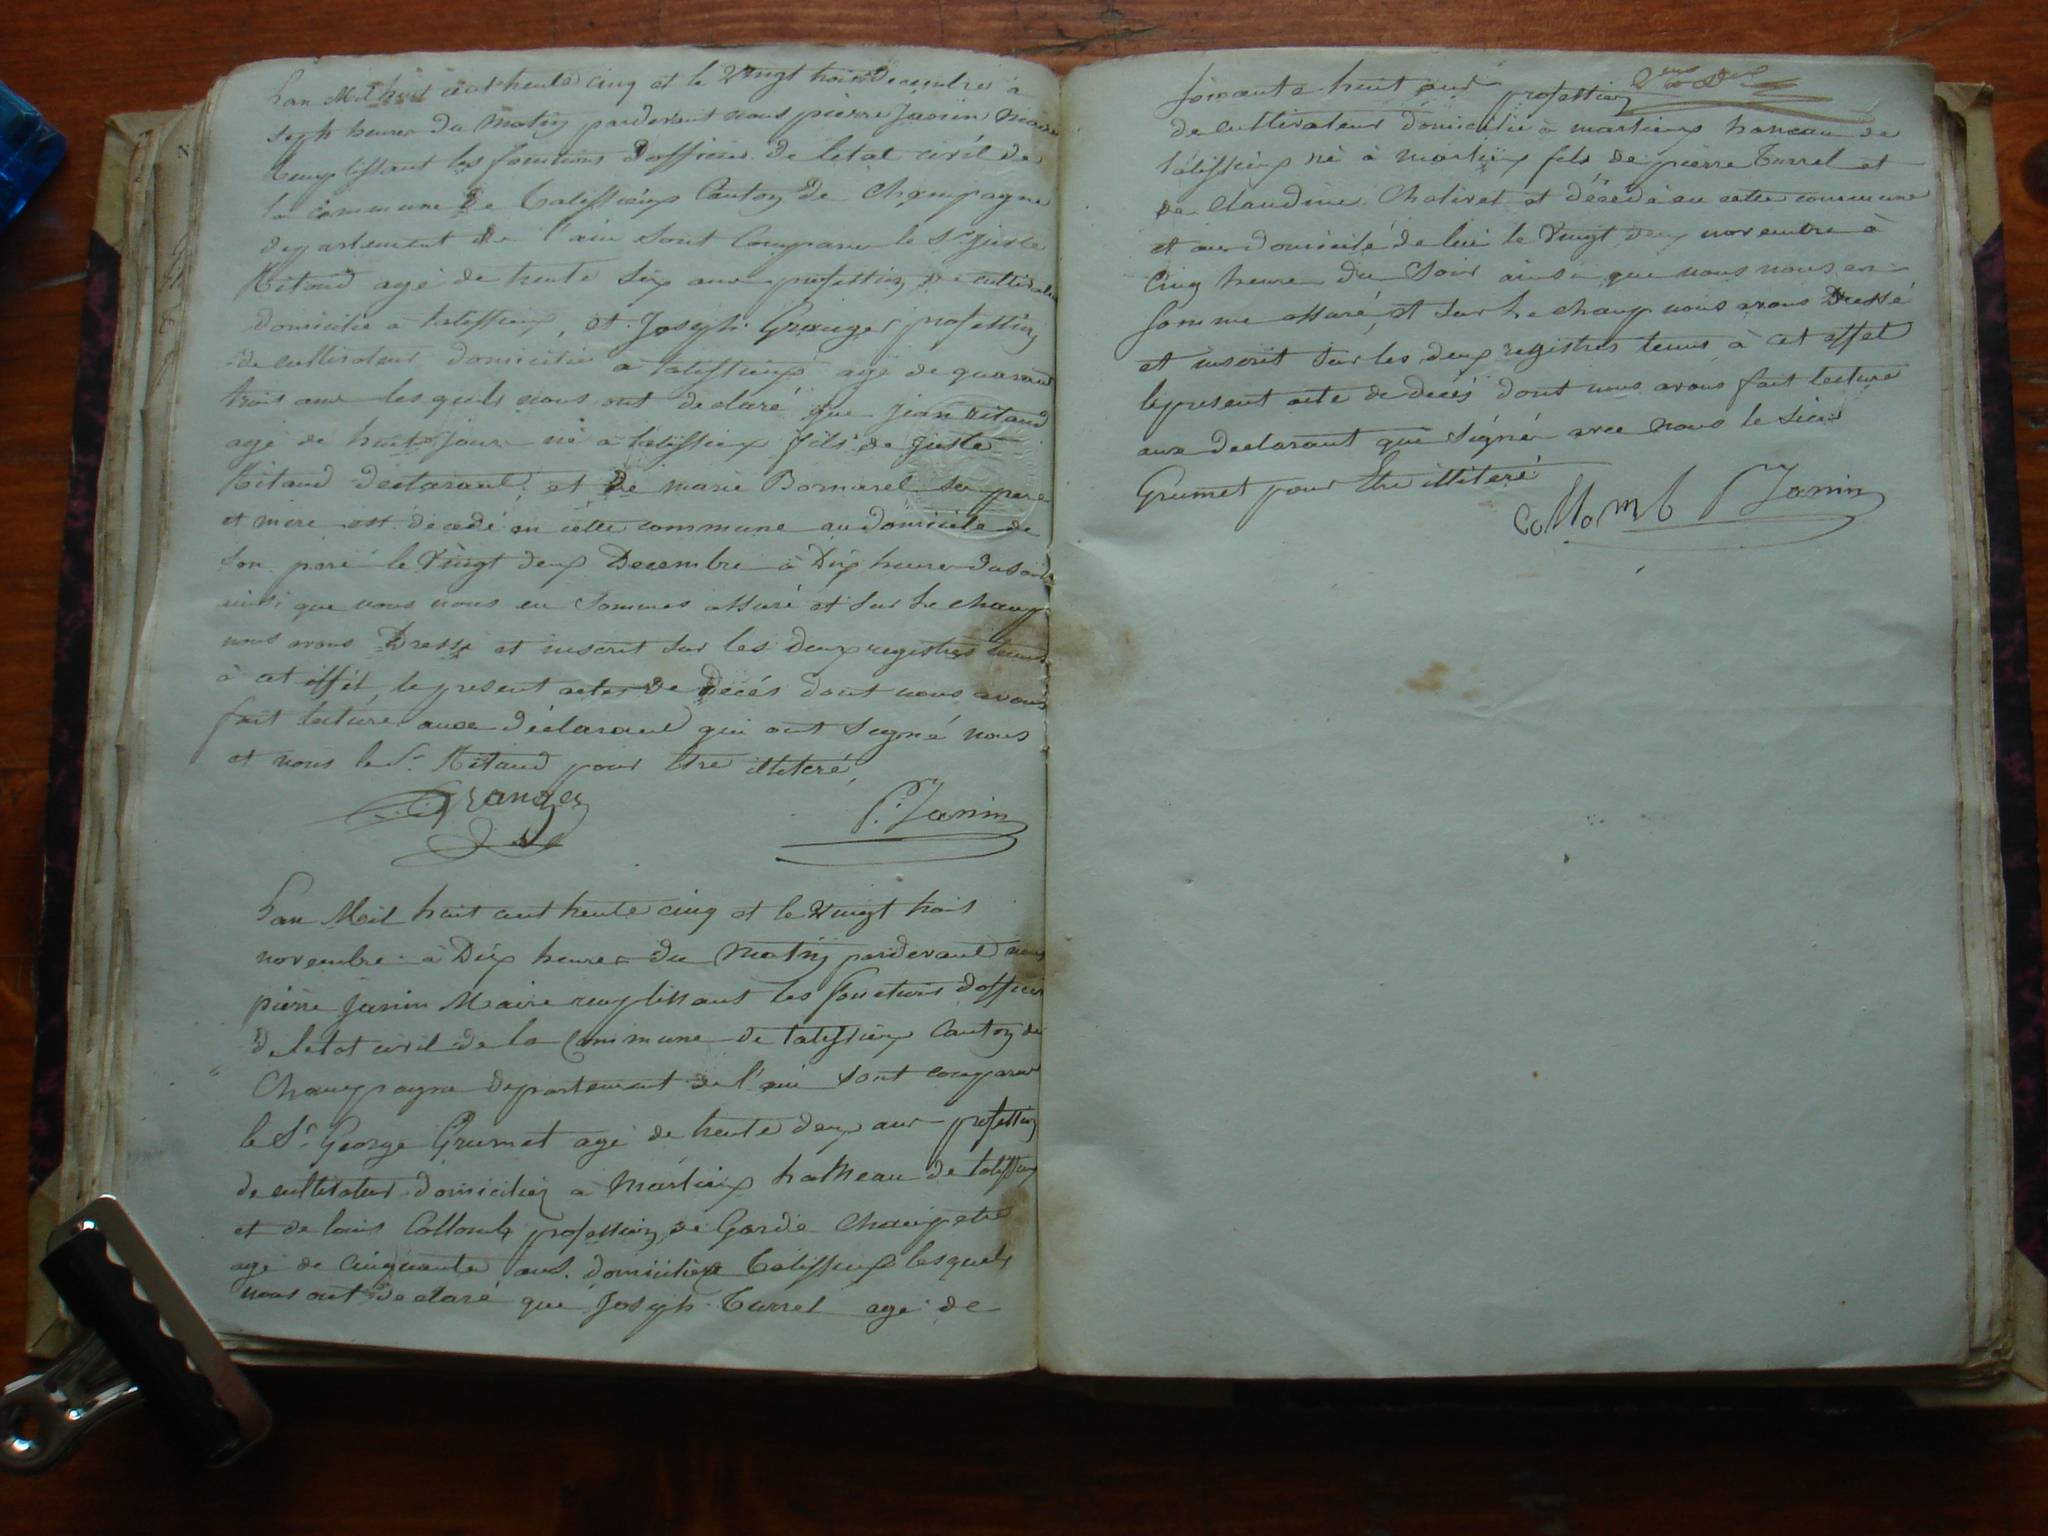 Lan Mil huit cent trente cinq et le Vingt trois Decembre à
sept heures du Matin pardevant nous pierre Janin Maire
remplissant les fonctions dofficier de letat civil de
la commune de talissieux Canton de Champagne
departement de l'ain sont Comparu le Sr. Juste
Ritaud agé de trente six ans profession de cultivateur
domicilié a talissieux, et Joseph Granger profession
de cultivateur domicilié a talissieux agé de quarante
trois ans lesquels nous ont declaré que jean Ritaud
agé de huit jours né a talissieux fils de Juste
Ritaud declarant, et de marie Bornarel ses pere
et mere est decedé en cette commune au domicile de
son pere le Vingt deux Decembre à Dix heures du soir
ainsi que nous nous en sommes assuré et sur le champ
nous avons Dressé et inscrit sur les deux registres tenus
à cet effét, le present actes de decés dont nous avons
fait lecture aux déclarant qui ont signé nous
et nous le Sr. Ritaud pour être illiteré,
Granger P. Janin
Lan Mil huit cent trente cinq et le Vingt trois
novembre à Dix heures du Matin pardevant nous
pierre Janin Maire remplissant les fonctions dofficier
de letat civil de la Commune de talissieux Canton de
Champagne departement de l'ain sont comparu
le Sr. George Grumet agé de trente deux ans profession
de cultivateur domicilié a Marlieux hameau de talissieux
et de louis Collomb profession de Garde Champetre
agé de cinquante ans. domicilié a talissieux lesquels
nous ont declaré que Joseph Turrel agé de
soixante huit ans profession
de cultivateur domicilié à marlieux hameau de
talissieux né à Marlieux fils de pierre Turrel et
de Claudine Chalivet et décedé en cette commune
et au domicile de lui le Vingt deux novembre à
Cinq heure du Soir ainsi que nous nous en
somme assuré, et sur le champ nous avons Dressé
et inscrit sur les deux registres tenus à cet effet
le present acte de decés dont nous avons fait lecture
aux declarant qui signé avec nous le sieur
Grumet pour Etre illiteré
collomb P Janin